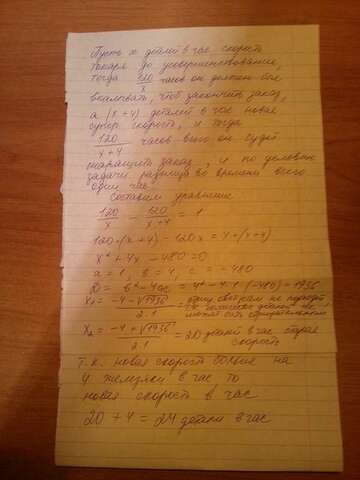 Пусть x деталей в час скорость
токаря до усовершенствования,
тогда 120/x часов он должен был
вкалывать, чтоб закончить заказ,
а (x+4) деталей в час новая
супер скорость, и тогда
120/(x+4) часов всего он будет
заказ, и по условию
задачи разница во времени всего
один час.
Составим уравнение
120/x - 120/(x+4) = 1
120·(x+4) - 120x =
x² + 4x - 480 = 0
a = 1, b = 4, c = -480
D = b² - 4ac = 4² - 4·1·(-480) = 1936
x₁ = (-4 - √1936)/(2·1) = не подходит, т.к. не может быть отрицательным
x₂ = (-4 + √1936)/(2·1) = 20 деталей в час старая
скорость
Т.к. новая скорость больше на
4 железяки в час, то
новая скорость в час
20 + 4 = 24 детали в час